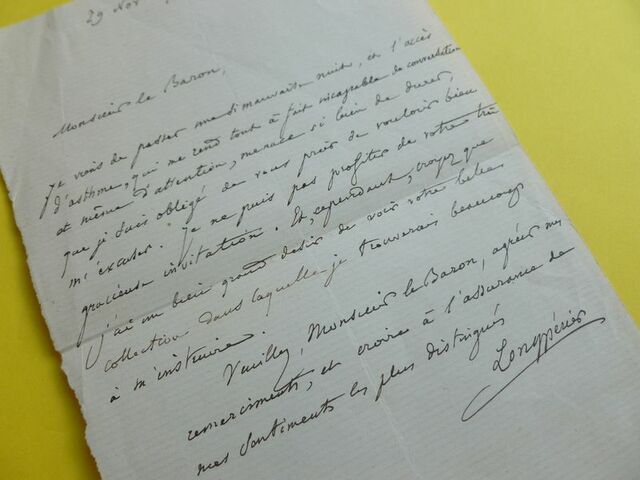 29 Nov
Monsieur le Baron,
Je viens de passer une si mauvaise nuit, et l'accès
d'asthme, qui me rend tout à fait incapable de conversation
et même d'attention, menace si bien de durer,
que je suis obligé de vous prier de vouloir bien
m'excuser. Je ne puis pas profiter de votre très
gracieuse invitation. Et, cependant, croyez que
j'ai un bien grand désir de voir votre belle
collection dans laquelle je trouverais beaucoup
à m'instruire.
Veuillez, Monsieur le Baron, agréer mes
remerciments, et croire à l'assurance de
mes sentiments les plus distingués
Longpérier